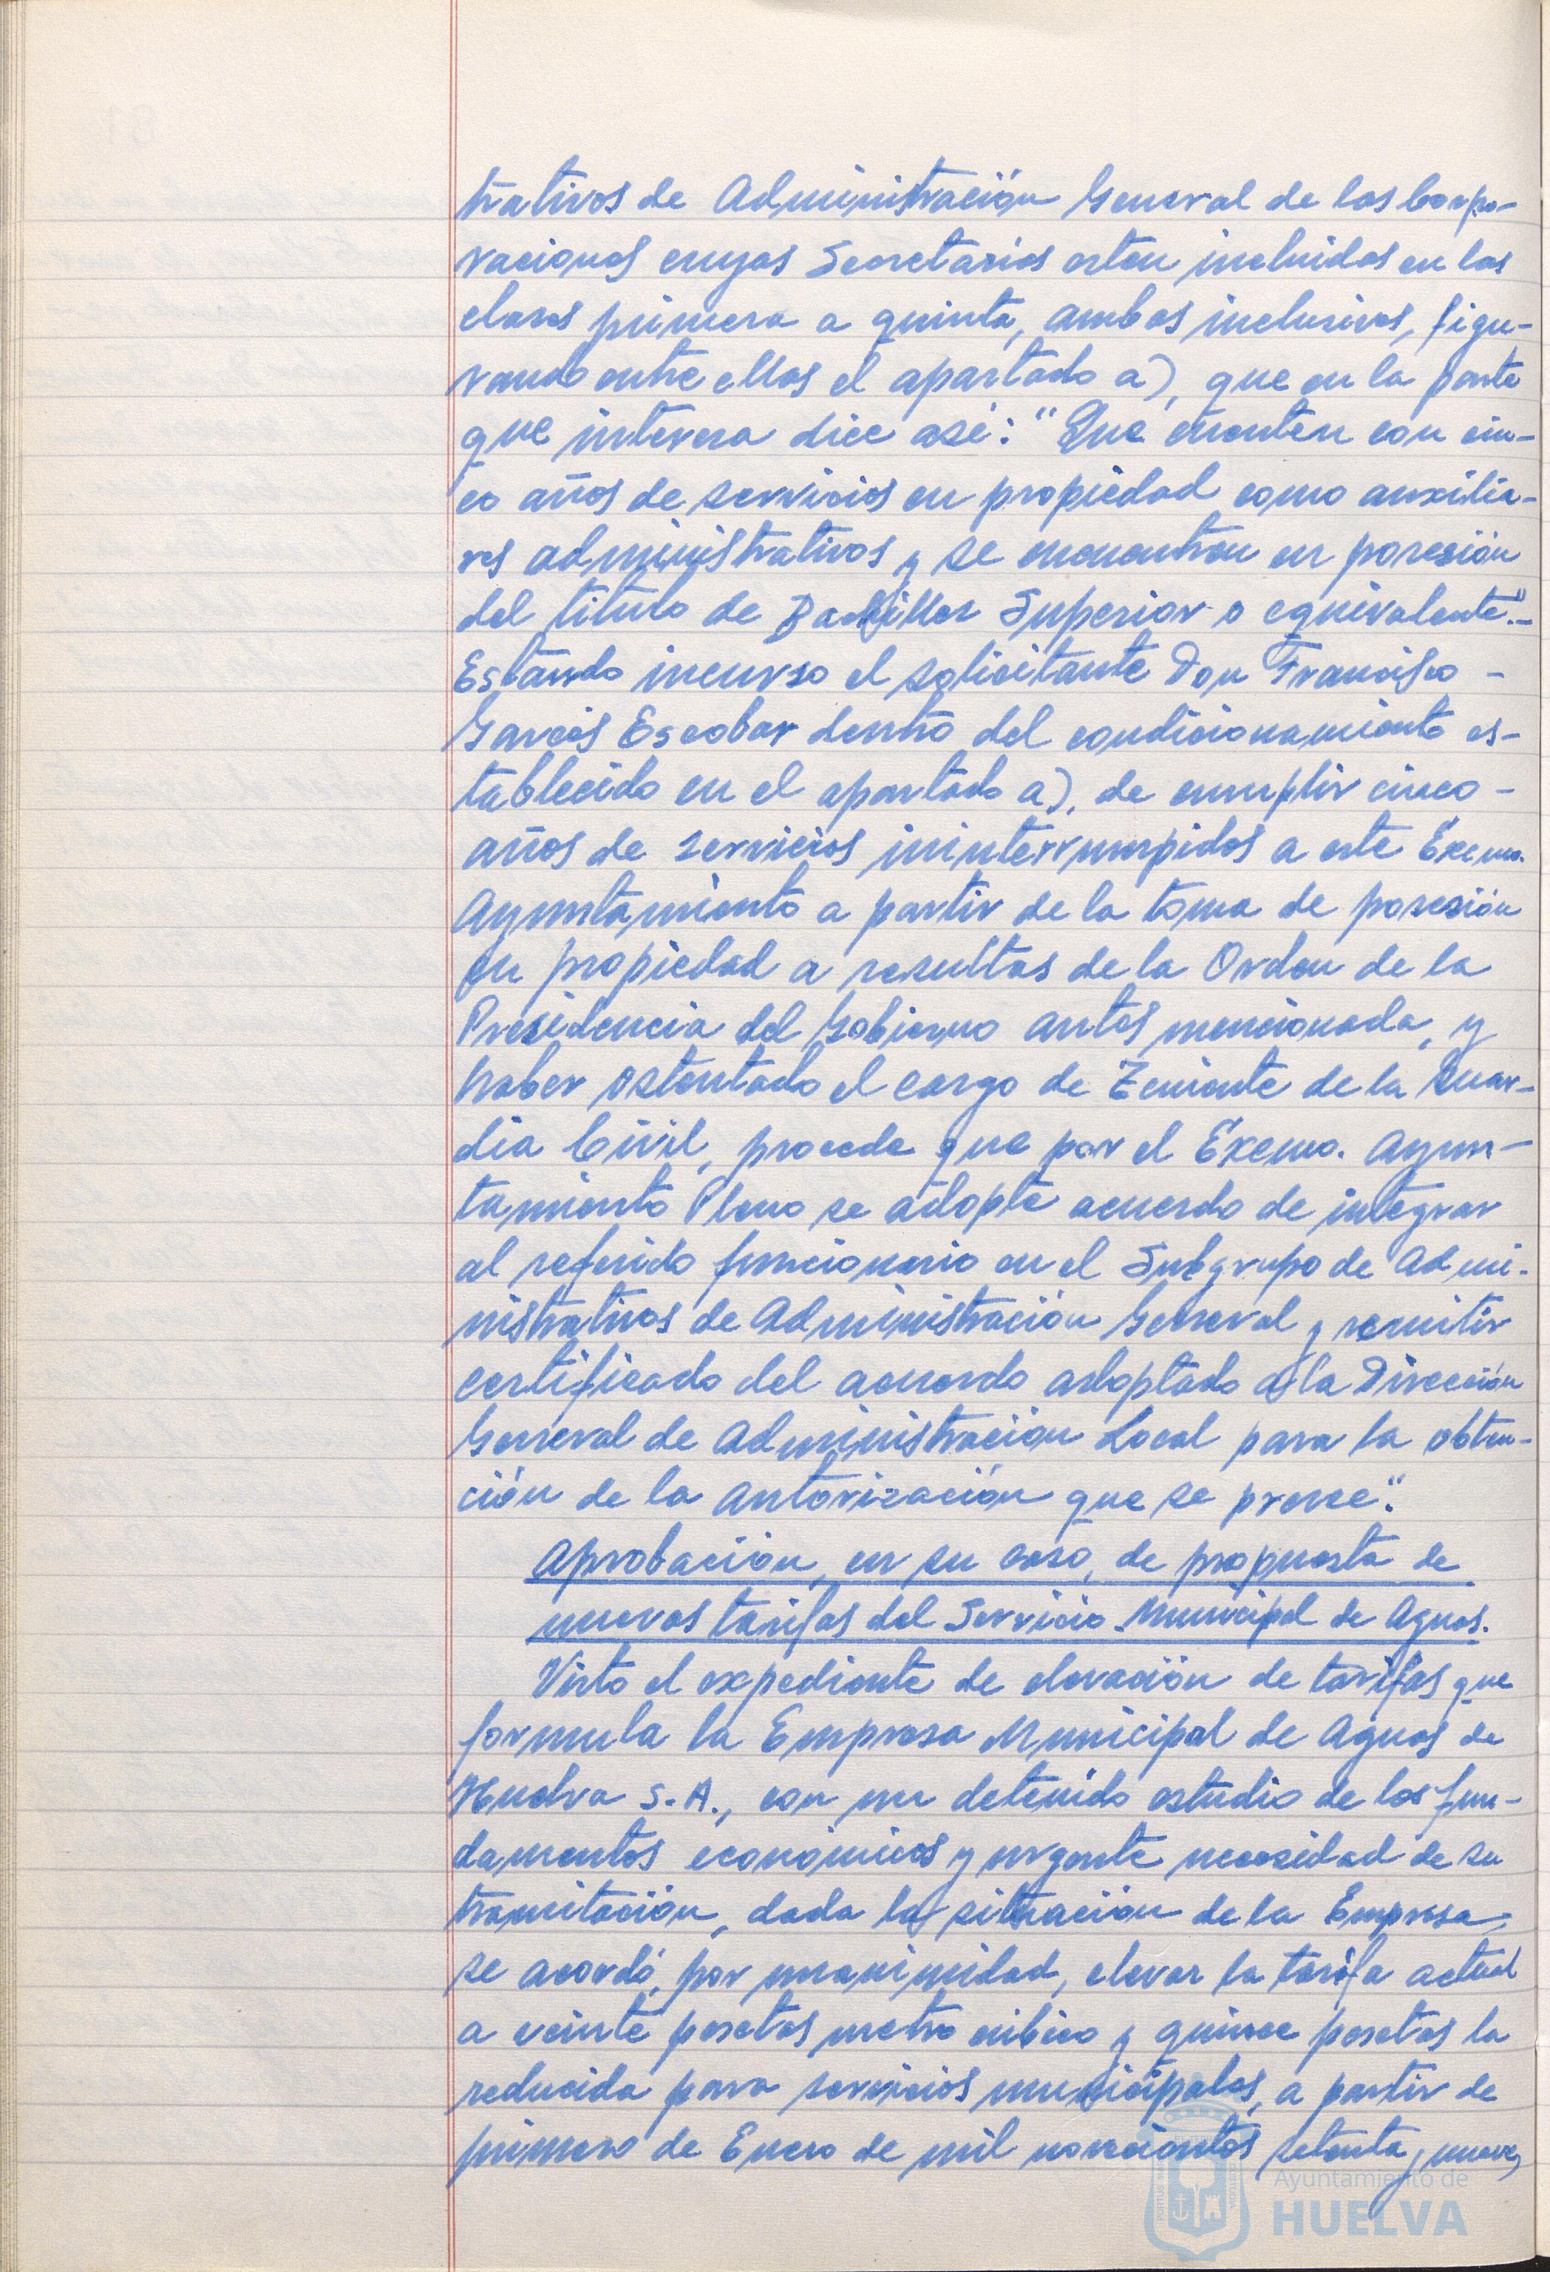 trativos de Administración General de las Corpo-
raciones cuyas Secretarías esten incluidas en las
clases primera a quinta, ambas inclusives, figu-
rando entre ellas el apartado a), que en la parte
que interesa dice así: "Que cuenten con cin-
co años de servicios en propiedad como auxilia-
res administrativos y se encuentran en posesión
del titulo de Bachiller Superior o equivalente".-
Estando incurso el solicitante Don Francisco -
Garcés Escobar dentro del condicionamiento es-
tablecido en el apartado a), de cumplir cinco -
años de servicios ininterrumpidos a este Excmo.
Ayuntamiento a partir de la toma de posesión
en propiedad a resultas de la Orden de la
Presidencia del Gobierno antes mencionada, y
haber ostentado el cargo de Teniente de la Guar-
dia Civil, procede que por el Excmo. Ayun-
tamiento Pleno se adopte acuerdo de integrar
al referido funcionario en el Subgrupo de Admi-
nistrativos de Administración General y remitir
certificado del acuerdo adoptado a la Dirección
General de Administración Local para la obten-
ción de la autorización que se precise".
Aprobación, en su caso, de propuesta de
nuevas tarifas del Servicio Municipal de Aguas.
Visto el expediente de elevación de tarifas que
formula la Empresa Municipal de Aguas de
Huelva S.A., con un detenido estudio de los fun-
damentos económicos y urgente necesidad de su
tramitación, dada la situación de la Empresa,
se acordó, por unanimidad, elevar la tarifa actual
a veinte pesetas metro cúbico y quince pesetas la
reducida para servicios municipales, a partir de
primero de Enero de mil novecientos setenta y nueve,
Ayuntamiento de
HUELVA